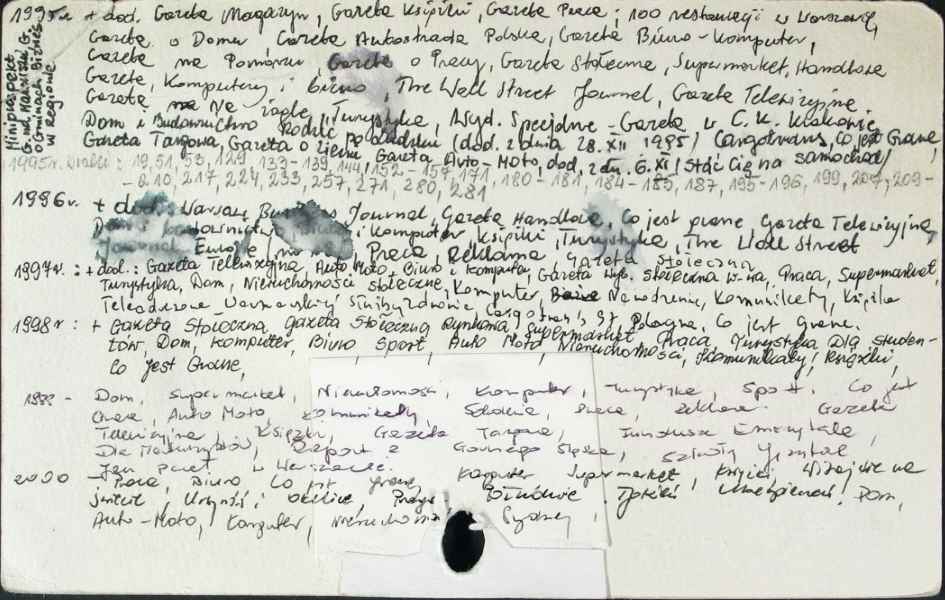 1995r. + dod. Gazeta Magazyn, Gazeta Książki, Gazeta Praca; 100 restauracji w Warszawie,
Gazeta o Domu Gazeta Autostrada Polska, Gazeta Biuro-Komputer,
Gazeta na Pomorzu Gazeta o Pracy, Gazeta Stołeczna, Supermarket, Handlowa
Gazeta, Komputery i biuro, The Wall Street Journal, Gazeta Telewizyjna
Gazeta na Na żagle, Turystyka, Wyd. Specjalne - Gazeta w C.K. Krakowie
Dom i Budownictwo Rodzić po ludzku (dod. z dnia 28.XII 1995) Cargotrans, Co jest Grane,
Gazeta Targowa, Gazeta o Gazeta Auto-Moto, dod. z dn. 6.XI Stać Cię na samochód
Miniprospect
G.
o Gminach Biznes
w Regionie
1995r. braki: 19, 51, 53, 129, 133-139, 144, 152-157, 171, 180-181, 184-185, 187, 195-196, 199, 207, 209-
-210, 217, 224, 233, 257, 271, 280, 281
1996r. + dod. Warsaw Business Journal, Gazeta Handlowa, Co jest grane, Gazeta Telewizyjna,
Dom i budownictwo, Biuro i Komputer Książki, Turystyka, The Wall Street
Journal Europe, Praca, Reklama Gazeta Stołeczna
1997r.: + dod.: Gazeta Telewizyjna, Auto Moto, Biuro i Komputer, Gazeta Wyb. stołeczna W-wa, Praca, Supermarket,
Turystyka, Dom, Nieruchomości stołeczne, Komputer, Biuro Nawodzenie, Komunikaty, Książka
Teleadresowe Warszawskiej Służby zdrowia, Cargotrans 97 Pologne, Co jest Grane.
1998r: + Gazeta Stołeczna, Gazeta Stołeczna Rynkowa, Supermarket, Praca, Turystyka Dla studen-
tów, Dom, Komputer, Biuro Sport, Auto Moto Nieruchomości, Komunikaty, Książki,
Co jest Grane,
1999 - Dom, Supermarket, Nieruchomości, Komputer, Turystyka, Sport. Co jest
Grane, Auto Moto, Komunikaty Szkolenie, Praca, Reklama. Gazeta
Telewizyjna, Książki, Gazeta Targowa, Fundusze Emerytalne,
Dla Maturzystów, Raport z Górnego Śląska, Szkoły
Jan Paweł w Warszawie.
2000 - Praca, Biuro Co jest grane, Komputer Supermarket, Książki, Witajcie na
świecie, Praga, Ubezpieczeń Dom,
Auto-Moto, Komputer, Nieruchomości Sydney,